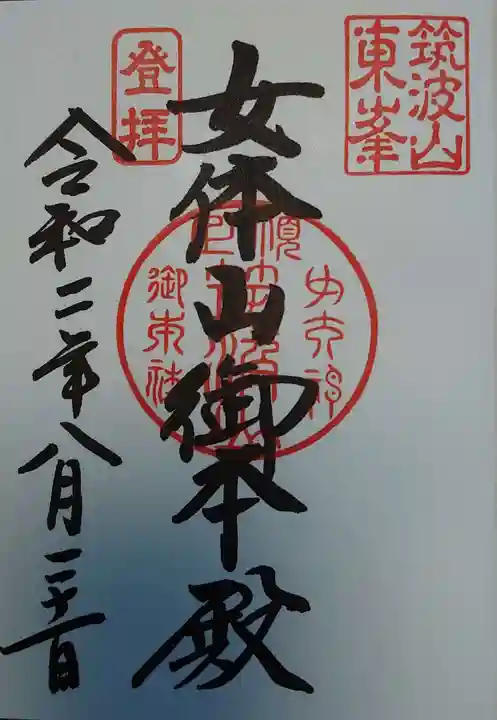 筑波山
東峯
登拝
女体山御本殿
御本社
令和二年八月二十一日